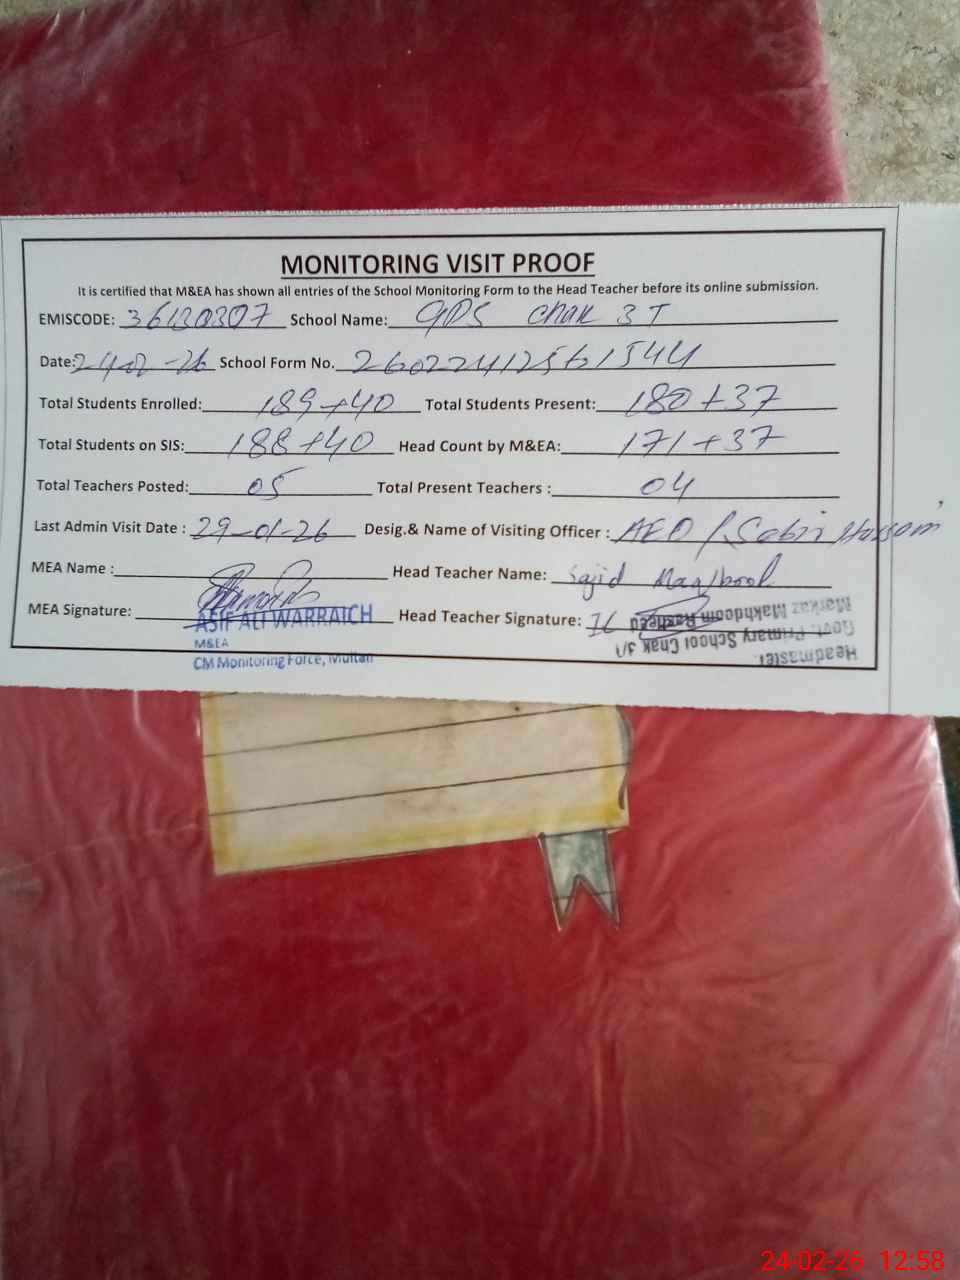 MONITORING VISIT PROOF
It is certified that M&EA has shown all entries of the School Monitoring Form to the Head Teacher before its online submission.
EMISCODE: 36130307 School Name: GPS Chak 3T
Date: 24-02-26 School Form No. 26022412561544
Total Students Enrolled: 189+40 Total Students Present: 180+37
Total Students on SIS: 188+40 Head Count by M&EA: 171+37
Total Teachers Posted: 05 Total Present Teachers : 04
Last Admin Visit Date : 29-01-26 Desig.& Name of Visiting Officer : AEO / Sabir Hussain
MEA Name : Head Teacher Name: Sajid Maqbool
MEA Signature: Head Teacher Signature:
ASIF ALI WARRAICH
M&EA
CM Monitoring Force, Multan
Headmaster
Govt. Primary School Chak 3/T
Markaz Makhdoom Rasheed
24-02-26 12:58